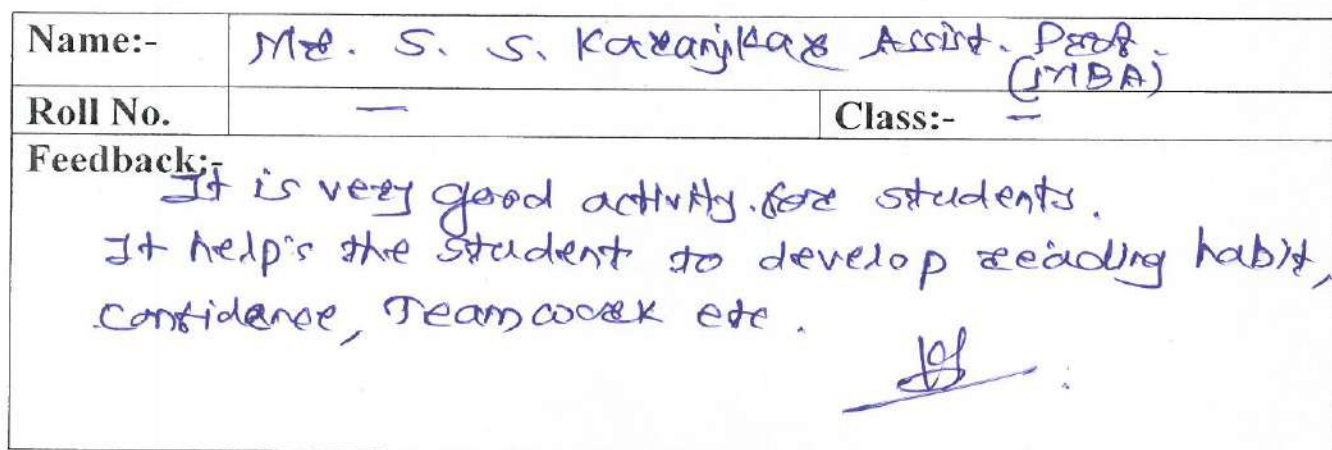 Name:- Mr. S. S. Karanjkar Assist. Prof.
(IMBA)
Roll No. — Class:- —
Feedback:-
It is very good activity. for students.
It help's the student to develop reading habit,
confidence, Teamwork etc.